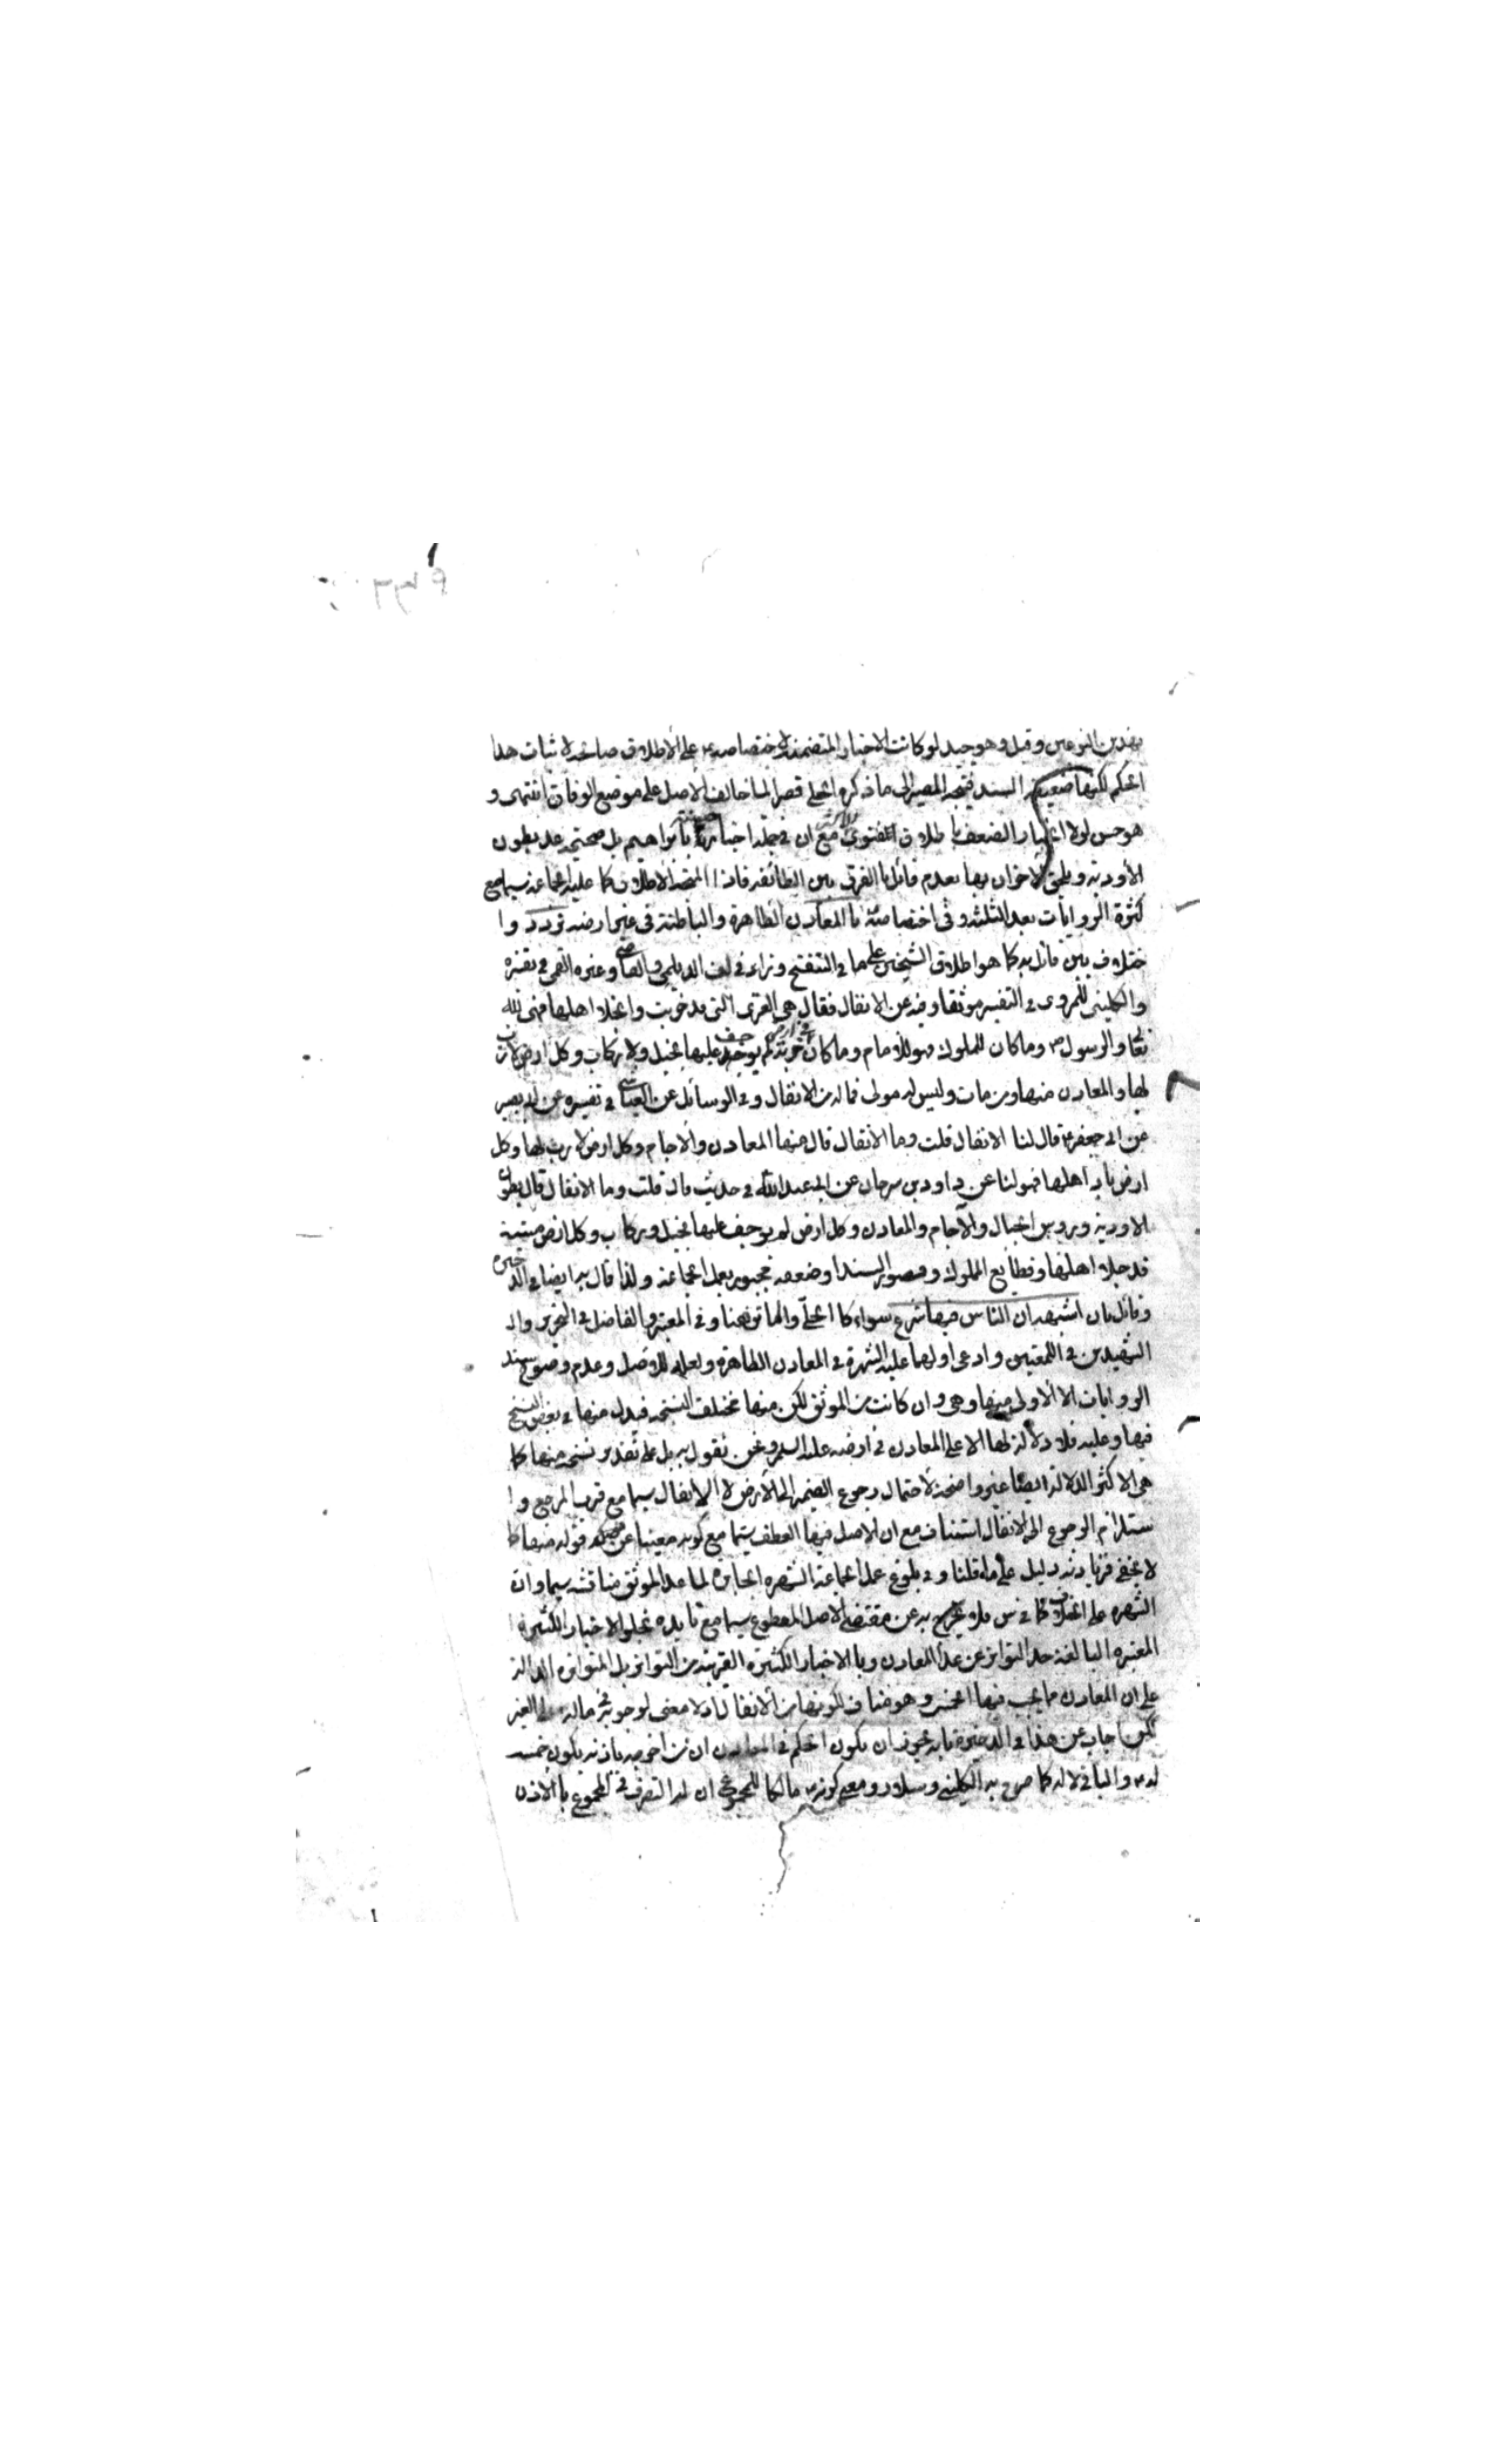 بهذين النوعين وقيل وهو جيد لو كانت الاخبار المتضمنة لاختصاصه على الاطلاق صالحة لاثبات هذا
الحكم لكنها ضعيفة السند فيتجه المصير الى ما ذكره الحلى قصرا لما خالف الاصل على موضع الوفاق انتهى و
هو حسن لولا الضعف باطلاق الفتوى مع ان فى جملة اخبارها بل صحيحه عد بطون
الأودية ويلحق الاخوان بها بعدم قائل بالفرق بين الطائفه فاذا المتجه الاطلاق كما عليه الجماعة سيما مع
كثرة الروايات بعد الثلثه وفى اختصاصه بالمعادن الظاهرة والباطنة فى غير ارضه تردد وا
ختلاف بين قائل به كما هو اطلاق الشيخين على ما فى التنقيح وزاد فى لف الديلمى والقاضى وغيره القمى فى تفسيره
والكلينى للمروى فى التفسير موثقا وفيه عن الانفال فقال هى القرى التى قد خربت وانجلا اهلها فهى لله
تعا وللرسول وما كان للملوك فهو للامام وما كان من ارض خربة لم يوجف عليها بخيل ولا ركاب وكل ارض لا رب
لها والمعادن منها ومن مات وليس له مولى فماله من الانفال وفى الوسائل عن العياشى فى تفسيره عن ابى بصير
عن ابى جعفر قال لنا الانفال قلت وما الأنفال قال منها المعادن والآجام وكل ارض لا رب لها وكل
ارض باد اهلها فهو لنا عن داود بن سرحان عن ابى عبد الله فى حديث قال قلت وما الانفال قال بطون
الاودية ورؤس الجبال والآجام والمعادن وكل ارض لم يوجف عليها بخيل وركاب وكل ارض ميتة
قد جلا اهلها وقطايع الملوك وقصور السند او ضعفه مجبور بعمل الجماعة ولذا قال به ايضا فى الذخيره
وقائل بان اشبهه ان الناس فيها شرع سواء كما الحلى والماتن هنا وفى المعتبر والفاضل فى التحرير وا
الشهيدين فى اللمعتين وادعى اولهما عليه الشهرة فى المعادن الظاهرة ولعله للاصل وعدم وضوح سند
الروايات الا الاولى منها وهى وان كانت من الموثق لكن منها مختلف النسخه فبدل منها فى بعض النسخ
فيها وعليه فلا دلالة لها الا على المعادن فى ارضه عليه السلم ونحن نقول به بل على تقدير نسخه منها كما
هى الاكثر الدلالة ايضا غير واضحة لاحتمال رجوع الضمير الى الأرض لا الى الانفال سيما مع قرب المرجع وا
ستلزام الرجوع الى الانفال استئناف مع ان الاصل فيها العطف سيما مع كونه مغنيا عن قوله منها كما
لا يخفى فزيادته دليل على ما قلنا وفى بلوغ عمل الجماعة الشهره الجابرة لما عدا الموثق مناقشه سيما وان
الشهره على الخلاف كما فى س فلا يخرج به عن مقتضى الاصل المقطوع سيما مع تأيده بخلو الاخبار الكثيرة
المعتبره البالغة حد التواتر عن عد المعادن وبالاخبار الكثيره القريبة من التواتر بل المتواتره الدالة
على ان المعادن مما يجب فيها الخمس وهو مناف لكونها من الأنفال اذ لا معنى لوجوبه فى ماله على الغير
لكن اجاب عن هذا فى الذخيرة بانه يجوز ان يكون الحكم فى المعادن ان من اخرجه باذنه يكون خمسه
له والباقى له كما صرح به الكلينى وسلار ومعنى كونه مالكا للمجموع ان له التصرف فى المجموع بالاذن